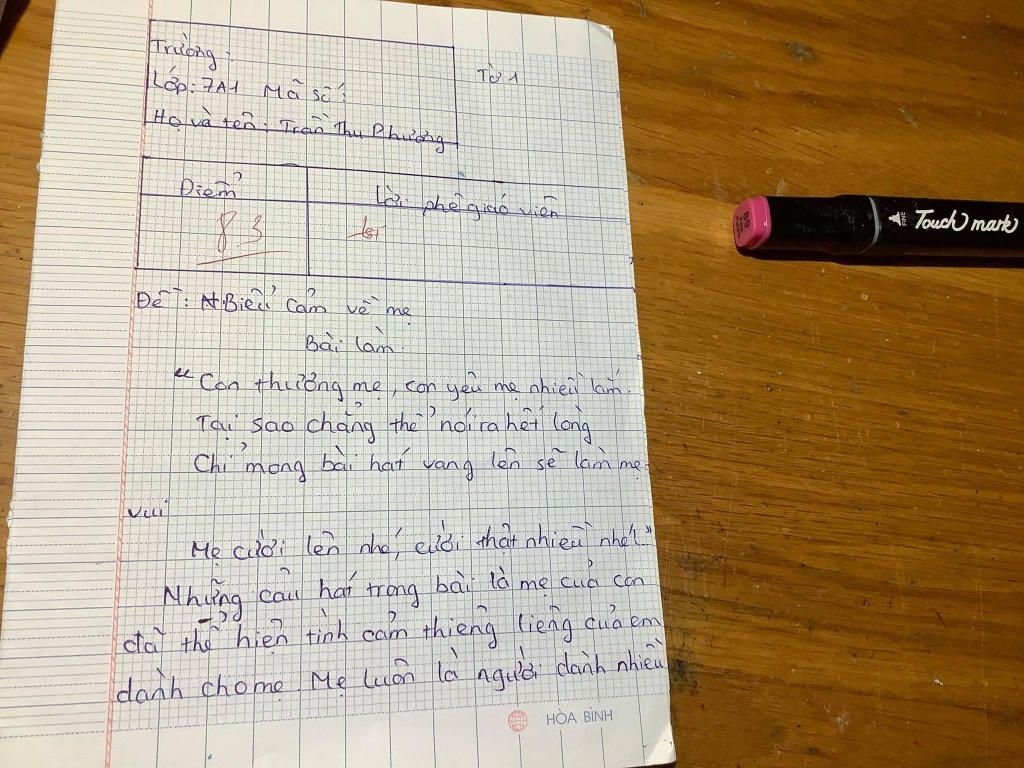 Trường:
Tờ 1
Lớp: 7A1 Mã số:
Họ và tên: Trần Thu Phương
Điểm
Lời phê giáo viên
8.3
Đề: Biểu cảm về mẹ
Bài làm
“ Con thương mẹ, con yêu mẹ nhiều lắm.
Tại sao chẳng thể nói ra hết lòng
Chỉ mong bài hát vang lên sẽ làm mẹ
vui
Mẹ cười lên nhé, cười thật nhiều nhé!.”
Những câu hát trong bài là mẹ của con
đã thể hiện tình cảm thiêng liêng của em
dành cho mẹ. Mẹ luôn là người dành nhiều
HÒA BÌNH
Touch mark
FINE